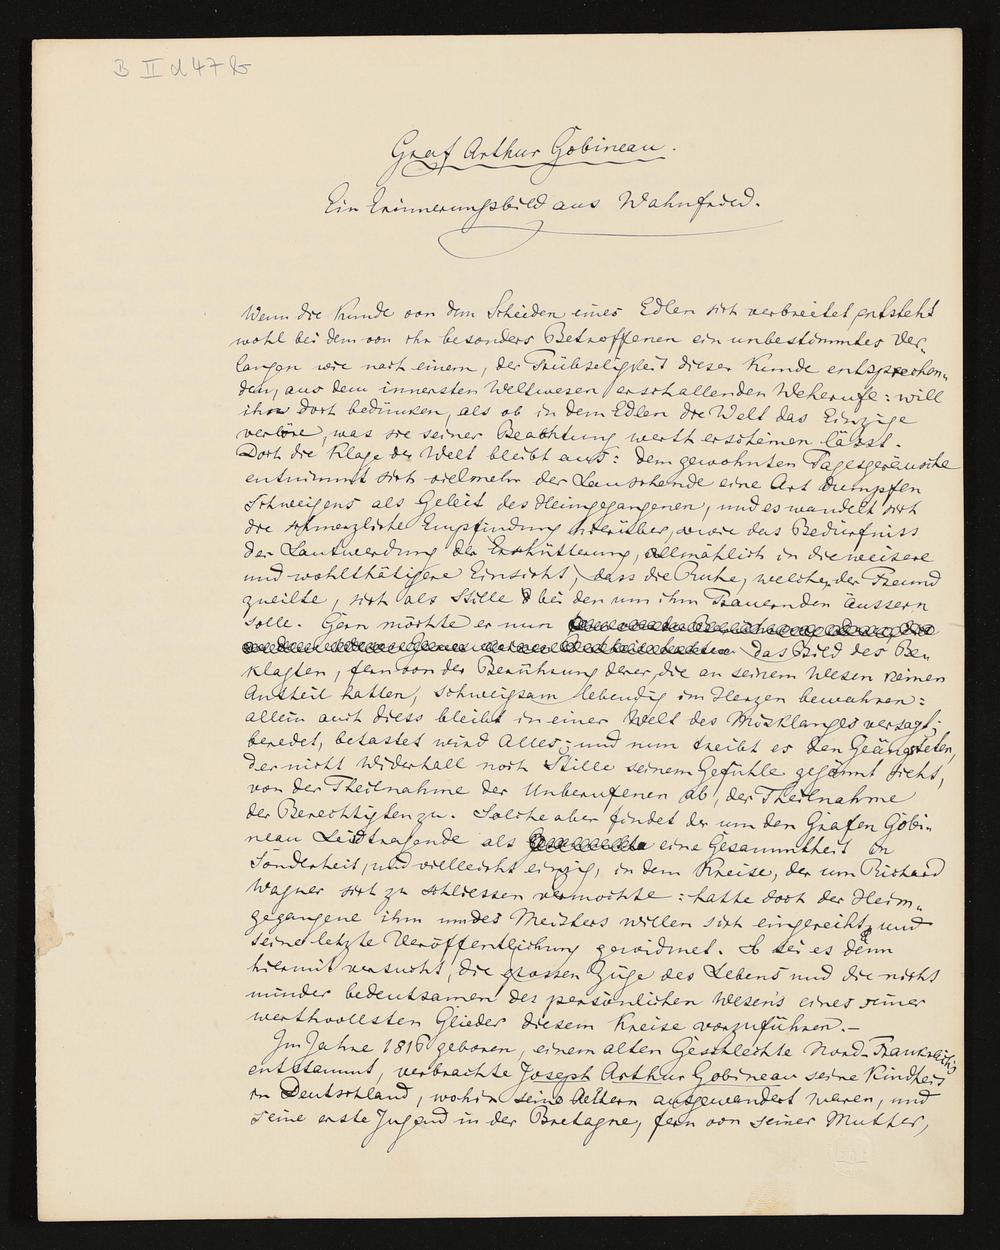 B II d 47 b
Graf Arthur Gobineau.
Ein Erinnerungsbild aus Wahnfried.
Wenn die Kunde von dem Scheiden eines Edlen sich verbreitet, entsteht
wohl bei dem von ihr besonders Betroffenen ein unbestimmtes Ver-
langen wie nach einem, der Trübseligkeit dieser Kunde entsprechen-
den, aus dem innersten Weltwesen erschallenden Weherufe: will
ihn doch bedünken, als ob in dem Edlen die Welt das Einzige
verlöre, was sie seiner Beachtung werth erscheinen lässt.
Doch die Klage der Welt bleibt aus: dem gewohnten Tagesgeräusche
entnimmt sich vielmehr der Lauschende eine Art dumpfen
Schweigens als Geleit des Heimgegangenen, und es wandelt sich
die schmerzliche Empfindung hierüber, sowie das Bedürfniss
der Lautwerdung der Erschütterung, allmählich in die weisere
und wohlthätigere Einsicht, dass die Ruhe, welcher der Freund
zueilte, sich als Stille bei den um ihn Trauernden äussern
solle. Gern möchte er nun
das Bild des Be-
klagten, fern von der Berührung derer, die an seinem Wesen keinen
Antheil hatten, schweigsam lebendig im Herzen bewahren:
allein auch diess bleibt in einer Welt des Misklanges versagt;
beredet, betastet wird Alles; und nun treibt es den Geängsteten,
der nicht Widerhall noch Stille seinem Gefühle gegönnt sieht,
von der Theilnahme der Unberufenen ab, der Theilnahme
der Berechtigten zu. Solche aber findet der um den Grafen Gobi-
neau Leidtragende als eine Gesammtheit in
Sonderheit, und vielleicht einzig, in dem Kreise, der um Richard
Wagner sich zu schliessen vermochte: hatte doch der Heim-
gegangene ihm um des Meisters willen sich eingereiht, und
seine letzte Veröffentlichung gewidmet. So sei es denn
hiermit versucht, die grossen Züge des Lebens und die nicht
minder bedeutsamen des persönlichen Wesens eines seiner
werthvollsten Glieder diesem Kreise vorzuführen. –
Im Jahre 1816 geboren, einem alten Geschlechte Nord-Frankreichs
entstammt, verbrachte Joseph Arthur Gobineau seine Kindheit
in Deutschland, wohin seine Aeltern ausgewandert waren, und
seine erste Jugend in der Bretagne, fern von seiner Mutter,